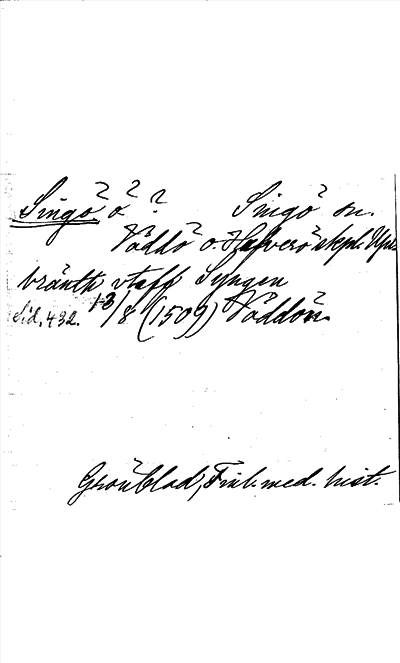 Singö ö ? Singö sn.
Väddö o. Häfverö skpl. Upl.
bränth vtaff Syngen
Sid. 432. 13/8 (1509) Väddön.
Grönblad, Finl. med. hist.